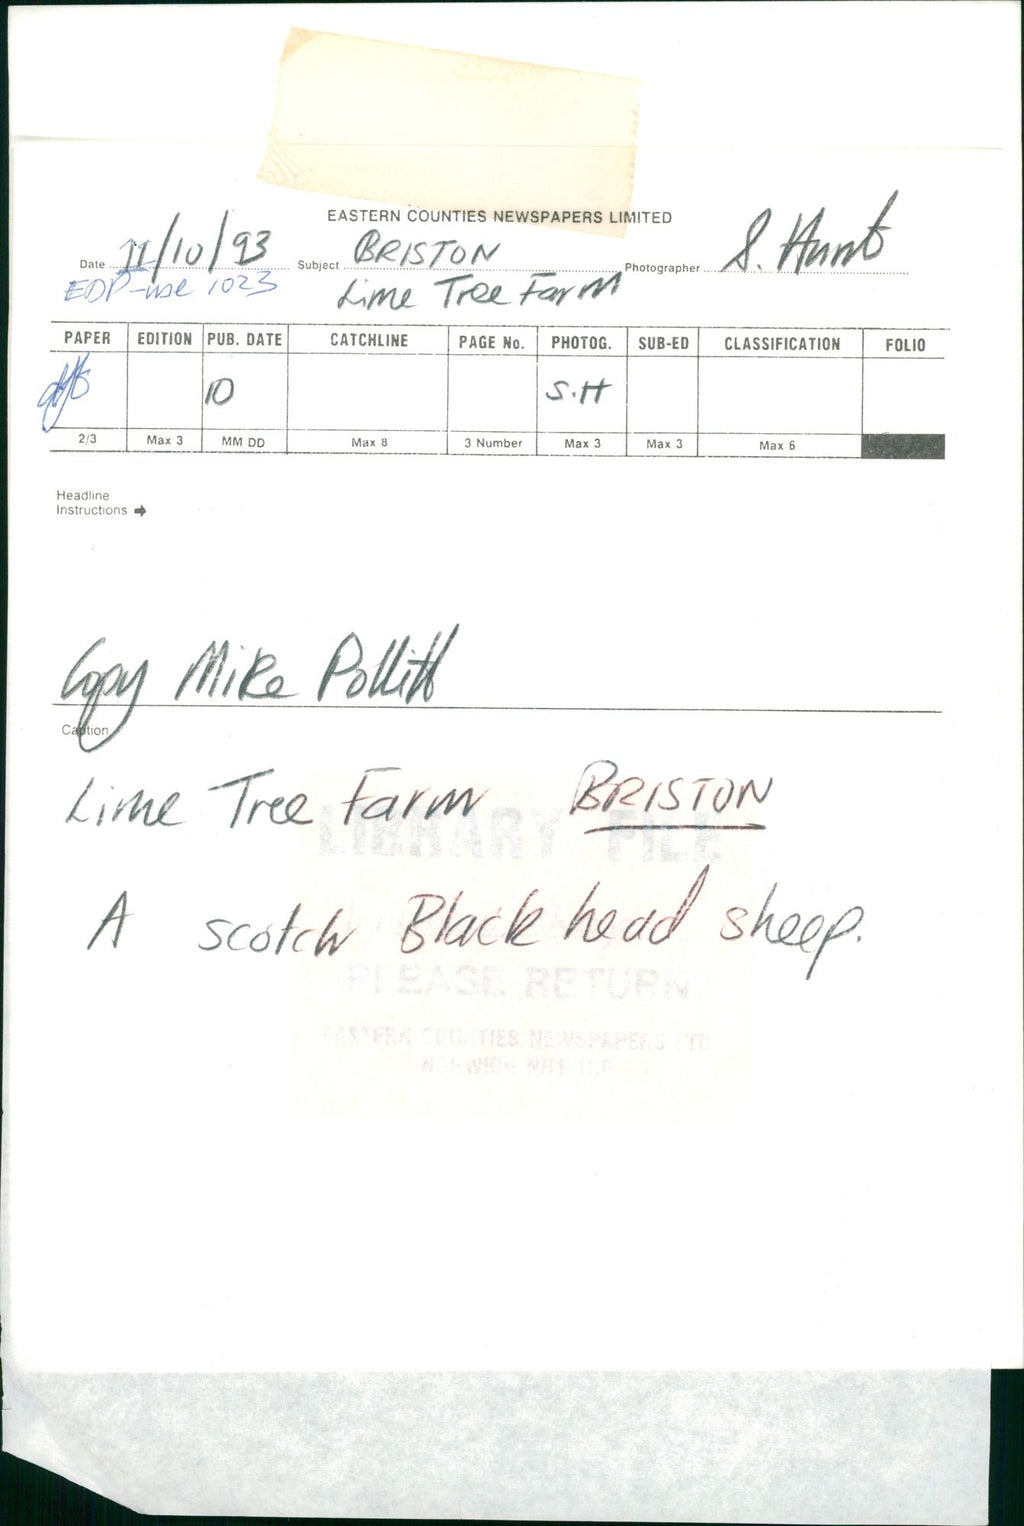 EASTERN COUNTIES NEWSPAPERS LIMITED
Date 11/10/93 Subject BRISTON Photographer S. Hunt
EDP-use 1023 Lime Tree Farm
PAPER EDITION PUB. DATE CATCHLINE PAGE No. PHOTOG. SUB-ED CLASSIFICATION FOLIO
10 S.H
2/3 Max 3 MM DD Max 8 3 Number Max 3 Max 3 Max 6
Headline
Instructions
Copy Mike Pollitt
Caption
Lime Tree Farm BRISTON
LIBRARY FILE
A scotch Black head sheep.
PLEASE RETURN
EASTERN COUNTIES NEWSPAPERS LTD
NORWICH NR1